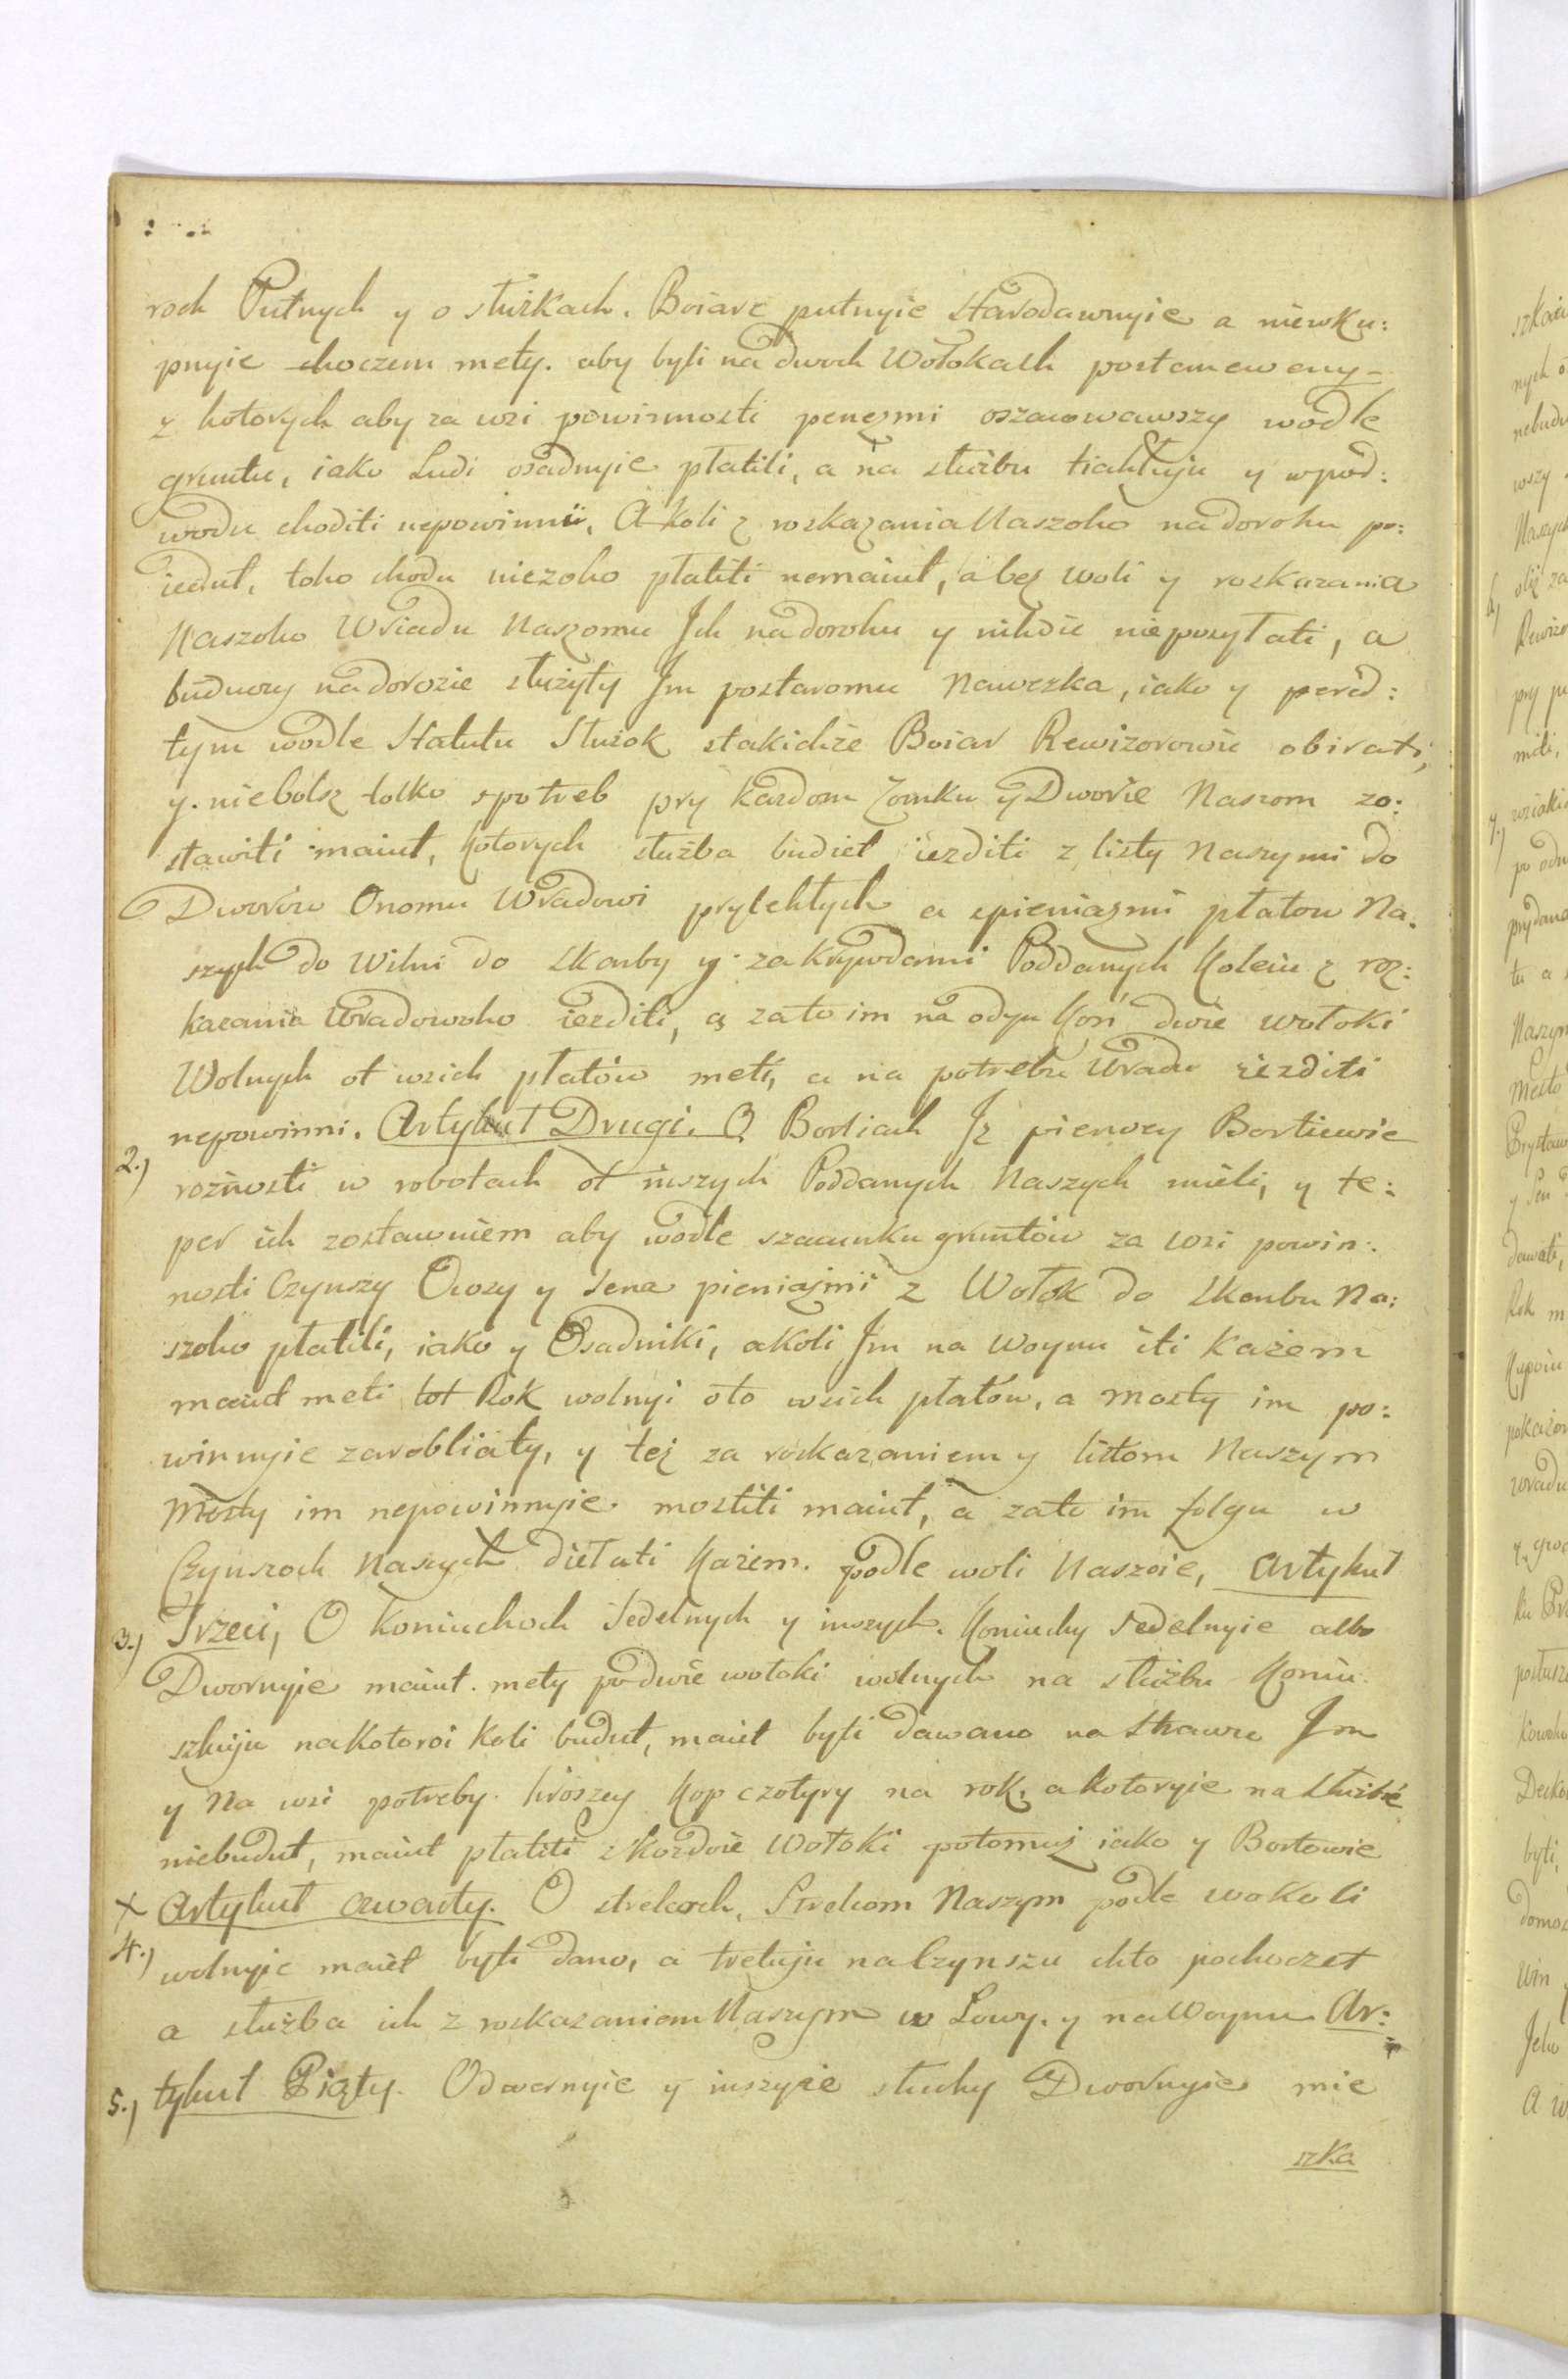 roch Putnych y o służkach. Boiare putnyie starodawnyie a niewku:
pnyie choczem mety. aby byli na dwoch Wołokach postanoweny
z kotorych aby za wsi powinnosti penezmi oszacowawszy wodle
gruntu, iako Ludi osadnyie płatili, a na służbu tiahłuju y w pod:
wodu choditi nepowinni, A koli z roskazania Naszoho na dorohu po:
iedut, toho chodu niezoho płatiti nemaiut, a bez woli y roskazania
Naszoho Wriadu Naszomu Ich na dorohu y nihdie nieposyłati, a
buduczy na dorozie służyty Im postaromu Nawezka, iako y pered:
tym wodle Statutu Służok z takichże Boiar Rewizorowie obirati,
y. niebolsz tolko z potreb pry każdom Zomku y Dworie Naszom zo:
stawiti maiut, kotorych służba budiet iezditi z listy Naszymi do
Dworów Onomu Wradowi prylehłych a z pieniazmi płatow Na:
szych do Wilni do Skarby y. za krywdami Poddanych Koleiu z roz:
kazania Wradowoho iezditi, a zato im na odyn Koń dwie wołoki
Wolnych ot wsich płatów meti, a na potrebu Wradu iezditi
nepowinni. Artykuł Drugi. O Bortiach Iż pierwey Bortiewie
2.) rożnosti w robotach ot inszych Poddanych Naszych mieli, y te:
per ich zostawuiem aby wodle szacunku gruntów za wsi powin:
nosti Czynszy Owsy y Sena pieniaźmi z Wołok do Skarbu Na:
szoho płatili, iako y Osadniki, a koli Im na Woynu iti każem
maiut meti tot Rok wolnyi oto wsich płatów, a mosty im po:
winnyie zarobliaty, y też za roskazaniem y listom Naszym
Mosty im nepowinnyie. mostiti maiut, a zato im folgu w
Czynszoch Naszych diełati Każem. podle woli Naszoie, Artykuł
3.) Trzeci, O Koniuchoch Sedelnych y inszych. Koniuchy Sedelnyie albo
Dwornyie maiut. mety po dwie wołoki wolnych na służbu Koniu
szkuju na kotoroi koli budut, maiet byti dawano na Strawu Im
y Na wsi potreby. hroszey Kop czotyry na rok, a kotoryie na służbie
niebudut, maiut płatiti z każdoie Wołoki potomuż iako y Bortowie
x Artykuł czwarty. O strelcoch, Strelcom Naszym podle wokoli
4.) wolnyie maiet byti dano, a tretuju na Czynszu chto pochoczet
a służba ich z roskazaniem Naszym w Łowy. y na Woynu Ar:
5.) tykuł Piąty. Odwernyie y inszyie słuchy Dwornyie mie
szka